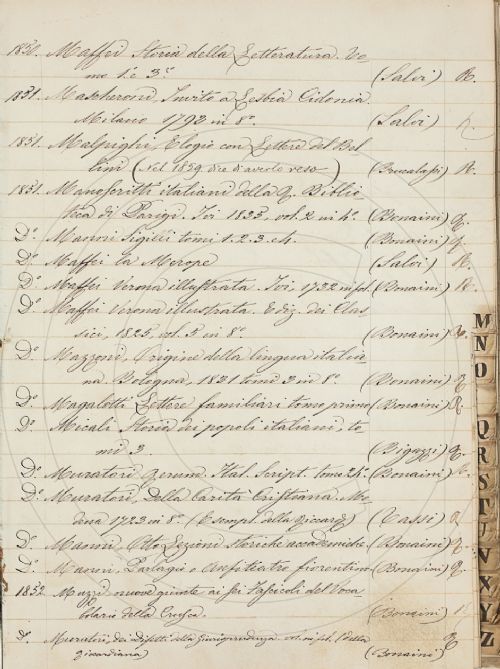 1850. Maffei Storia della Letteratura. To-
mo 1.º e 3.º (Salvi) R.
1851. Mascheroni Invito a Lesbia Cidonia
Milano 1793 in 8.º (Salvi)
1851. Malpighi, Elogio con Lettere del Bel-
lini (Nel 1859 dice di averlo reso) R.
1851. Manoscritti italiani della R. Biblio-
teca di Parigi. Ivi 1835, vol. 2 in 4.º (Bonaini) R.
Dº. Manni Sigilli tomi 1. 2. 3. e 4. (Bonaini) R.
Dº. Maffei la Merope (Salvi) R.
Dº. Maffei Verona illustrata. Ivi, 1732 in fol. (Bonaini) R.
Dº. Maffei Verona illustrata. Ediz. dei Clas-
sici, 1825, vol. 5 in 8.º (Bonaini) R.
Dº. Mazzoni, Origine della lingua italia-
na. Bologna, 1831 tomi 2 in 8.º (Bonaini) R.
Dº. Magalotti Lettere familiari tomo primo (Bonaini) R.
Dº. Micali Storia dei popoli italiani, to-
mi 3. (Bigazzi) R.
Dº. Muratori Rerum. Ital. Script. tomo 24.º (Bonaini) R.
Dº. Muratori, Della Carità Cristiana. Mo-
dena 1723 in 8.º (Esempl. della Riccard.) (Tassi) R
Dº. Manni, Otto Lezioni storiche accademiche. (Bonaini) R.
Dº. Manni, Parlagio o Anfiteatro fiorentino (Bonaini) R.
1852. Muzzi nuove giunte ai sei Fascicoli del Voca-
bolario della Crusca. (Bonaini)
Dº. Muratori, dei difetti della Giurisprudenza vol. in fol. della
Riccardiana (Bonaini) R
M
N
O
Q
R
S
T
U
V
X
Y
Z